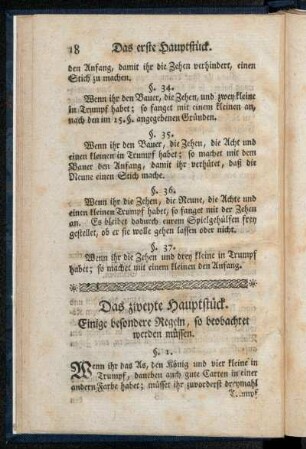 18 Das erste Hauptstück.
den Anfang, damit ihr die Zehen verhindert, einen
Stich zu machen.
§. 34.
Wenn ihr den Bauer, die Zehen, und zwey kleine
in Trumpf habet; so fanget mit einem kleinen an,
nach den im 15. §. angegebenen Gründen.
§. 35.
Wenn ihr den Bauer, die Zehen, die Acht und
einen kleinen in Trumpf habet; so machet mit dem
Bauer den Anfang, damit ihr verhütet, daß die
Neune einen Stich mache.
§. 36.
Wenn ihr die Zehen, die Neune, die Achte und
einen kleinen Trumpf habet, so fanget mit der Zehen
an. Es bleibet dadurch eurem Spielgehülfen frey
gestellet, ob er sie wolle gehen lassen oder nicht.
§. 37.
Wenn ihr die Zehen und drey kleine in Trumpf
habet; so machet mit einem kleinen den Anfang.
Das zweyte Hauptstück.
Einige besondere Regeln, so beobachtet
werden müssen.
§. 1.
Wenn ihr das As, den König und vier kleine in
Trumpf, daneben auch gute Carten in einer
andern Farbe habet; müsset ihr zuvorderst dreymahl
Trumpf